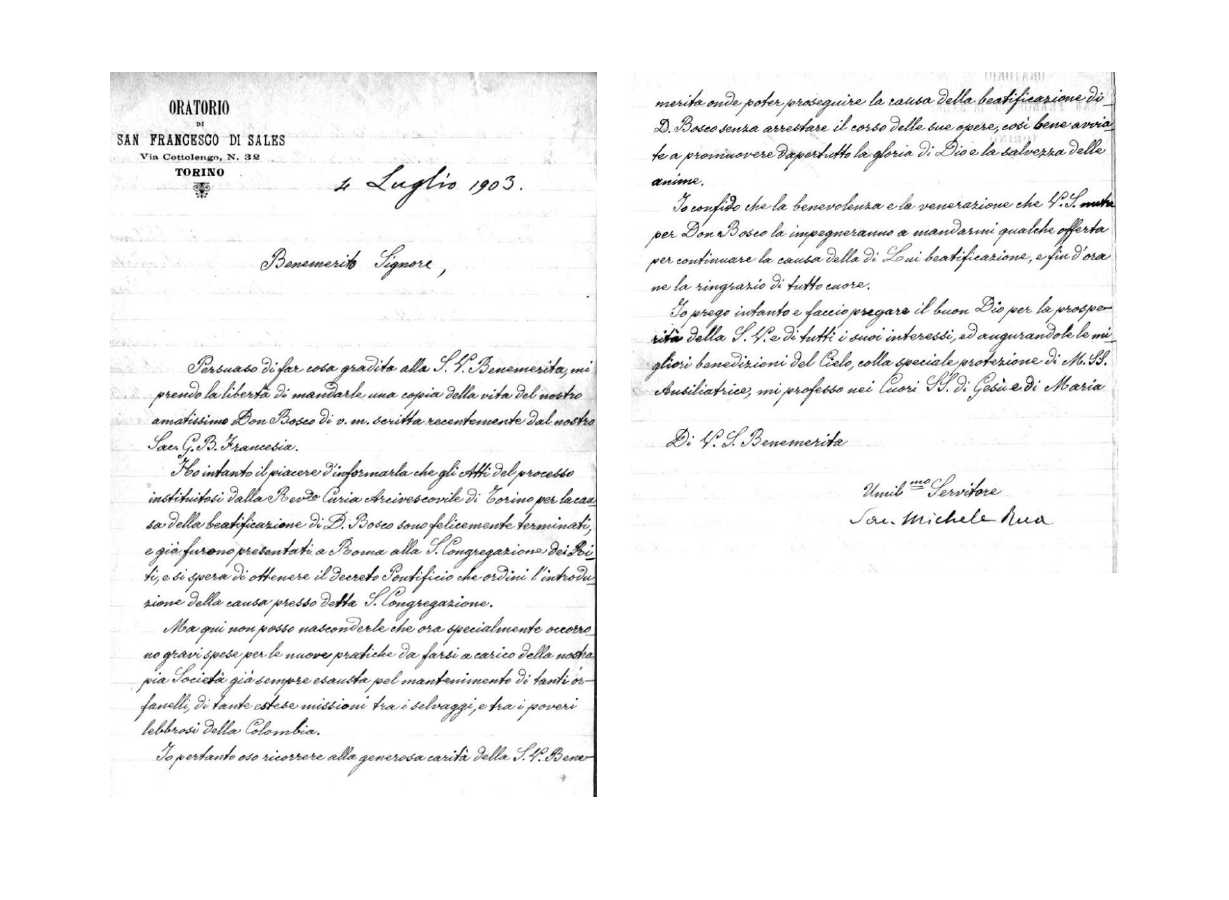 ORATORIO
DI
SAN FRANCESCO DI SALES
Via Cottolengo, N. 32
TORINO
4 Luglio 1903.
Benemerito Signore,
Persuaso di far cosa gradita alla S. V. Benemerita, mi
prendo la libertà di mandarle una copia della vita del nostro
amatissimo Don Bosco di v. m. scritta recentemente dal nostro
Sac. G. B. Francesia.
Ho intanto il piacere d'informarla che gli Atti del processo
instituitosi dalla Rev.da Curia Arcivescovile di Torino per la cau
sa della beatificazione di D. Bosco sono felicemente terminati,
e già furono presentati a Roma alla S. Congregazione dei Ri-
ti, e si spera di ottenere il decreto Pontificio che ordini l'introdu-
zione della causa presso detta S. Congregazione.
Ma qui non posso nasconderle che ora specialmente occorro-
no gravi spese per le nuove pratiche da farsi a carico della nostra
pia Società già sempre esausta pel mantenimento di tanti or-
fanelli, di tante estese missioni tra i selvaggi, e tra i poveri
lebbrosi della Colombia.
Io pertanto oso ricorrere alla generosa carità della S. V. Bene-
merita onde poter proseguire la causa della beatificazione di
D. Bosco senza arrestare il corso delle sue opere, così bene avvia-
te a promuovere dapertutto la gloria di Dio e la salvezza delle
anime.
Io confido che la benevolenza e la venerazione che V. S. nutre
per Don Bosco la impegneranno a mandarmi qualche offerta
per continuare la causa della di Lui beatificazione, e fin d'ora
ne la ringrazio di tutto cuore.
Io prego intanto e faccio pregare il buon Dio per la prospe-
rità della S. V. e di tutti i suoi interessi, ed augurandole le mi-
gliori benedizioni del Cielo, colla speciale protezione di M. SS.
Ausiliatrice, mi professo nei Cuori SS. di Gesù e di Maria
Di V. S. Benemerita
Umil.mo Servitore
Sac. Michele Rua